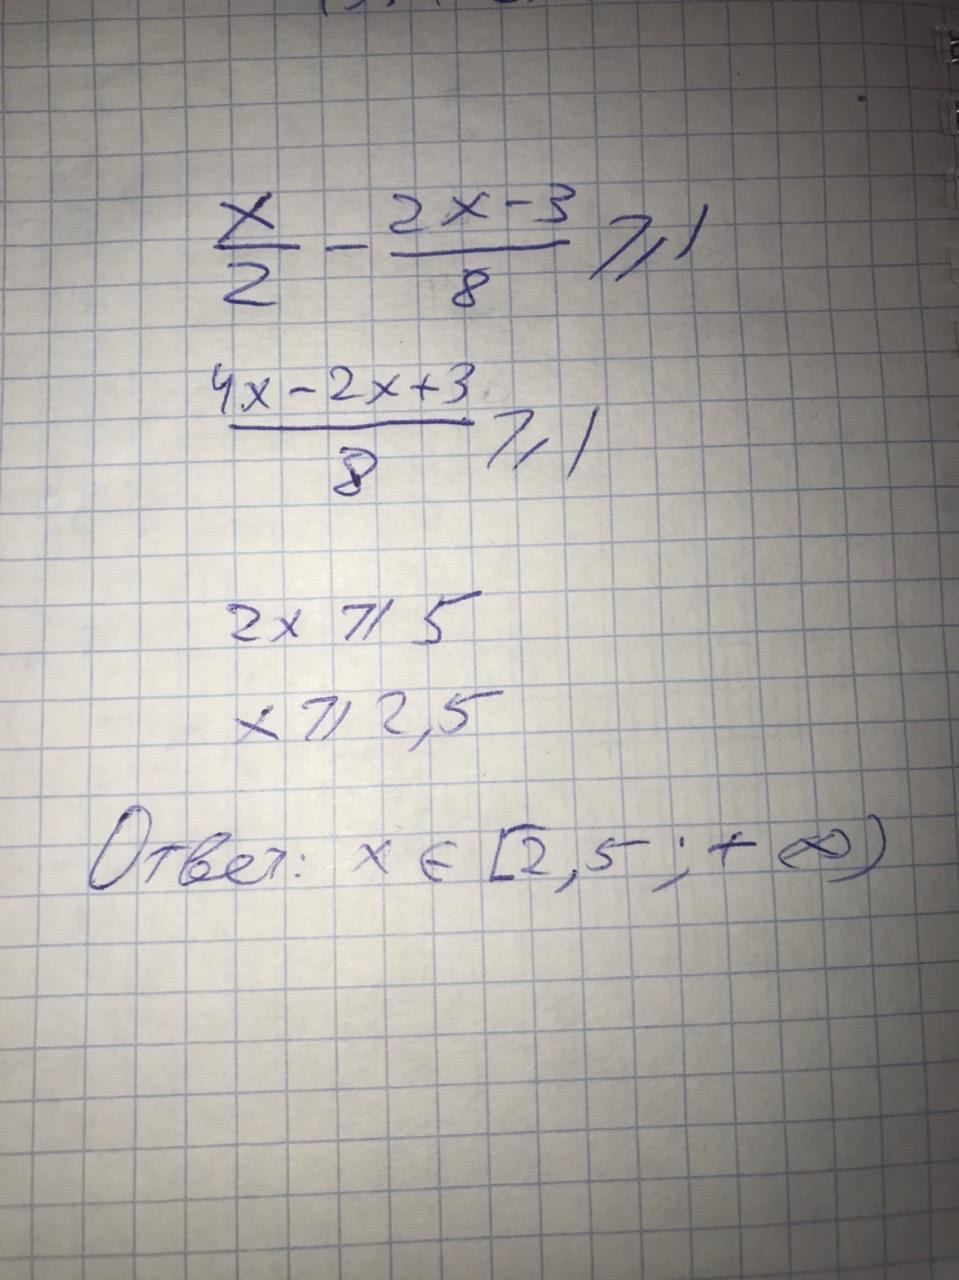 x/2 - (2x-3)/8 ⩾ 1
(4x-2x+3)/8 ⩾ 1
2x ⩾ 5
x ⩾ 2,5
Ответ: x ∈ [2,5 ; + ∞)